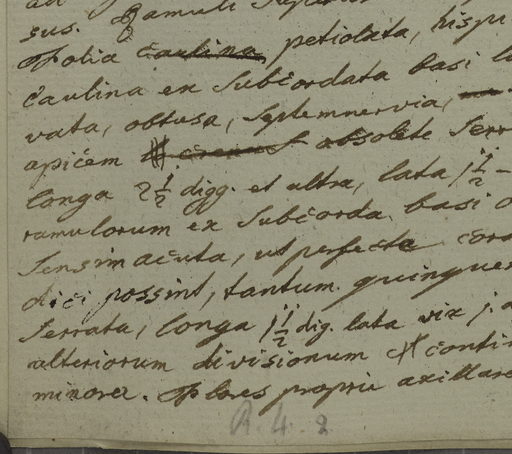 sus. Ramuli
Folia caulina petiolata, hispi
Caulina ex subcordata basi
vata, obtusa, septemnervia,
apicem absolete serr
longa 2 1/2 digg. et ultra, lata j 1/2 -
ramulorum ex subcorda basi o
sensim acuta, ut perfecte cord
dici possint, tantum quinquener
serrata, longa j 1/2 dig. lata vix j.
alteriorum divisionum contin
minores. Flores proprie axillare
R. 4. 2